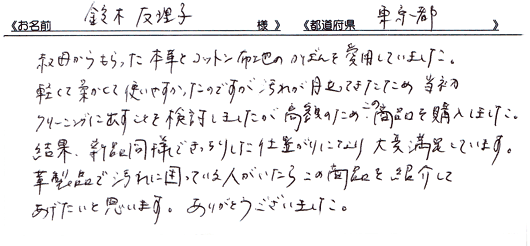 《お名前 鈴木 友理子 様 》 《都道府県 東京都 》
叔母からもらった本革とコットン布地のかばんを愛用していました。
軽くて柔かくて使いやすかったのですが汚れが目立ってきたため 当初
クリーニングに出すことを検討しましたが高額のためこの商品を購入しました。
結果、新品同様ですっきりした仕上がりになり 大変満足しています。
革製品で汚れに困っている人がいたらこの商品を紹介して
あげたいと思います。ありがとうございました。